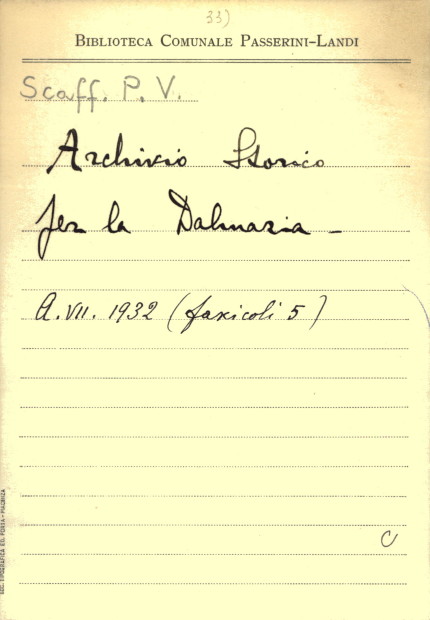 33)
BIBLIOTECA COMUNALE PASSERINI-LANDI
Scaff. P. V.
Archivio Storico
per la Dalmazia -
A. VII. 1932 (fascicoli 5)
C
SOC. TIPOGRAFICA ED. PORTA - PIACENZA